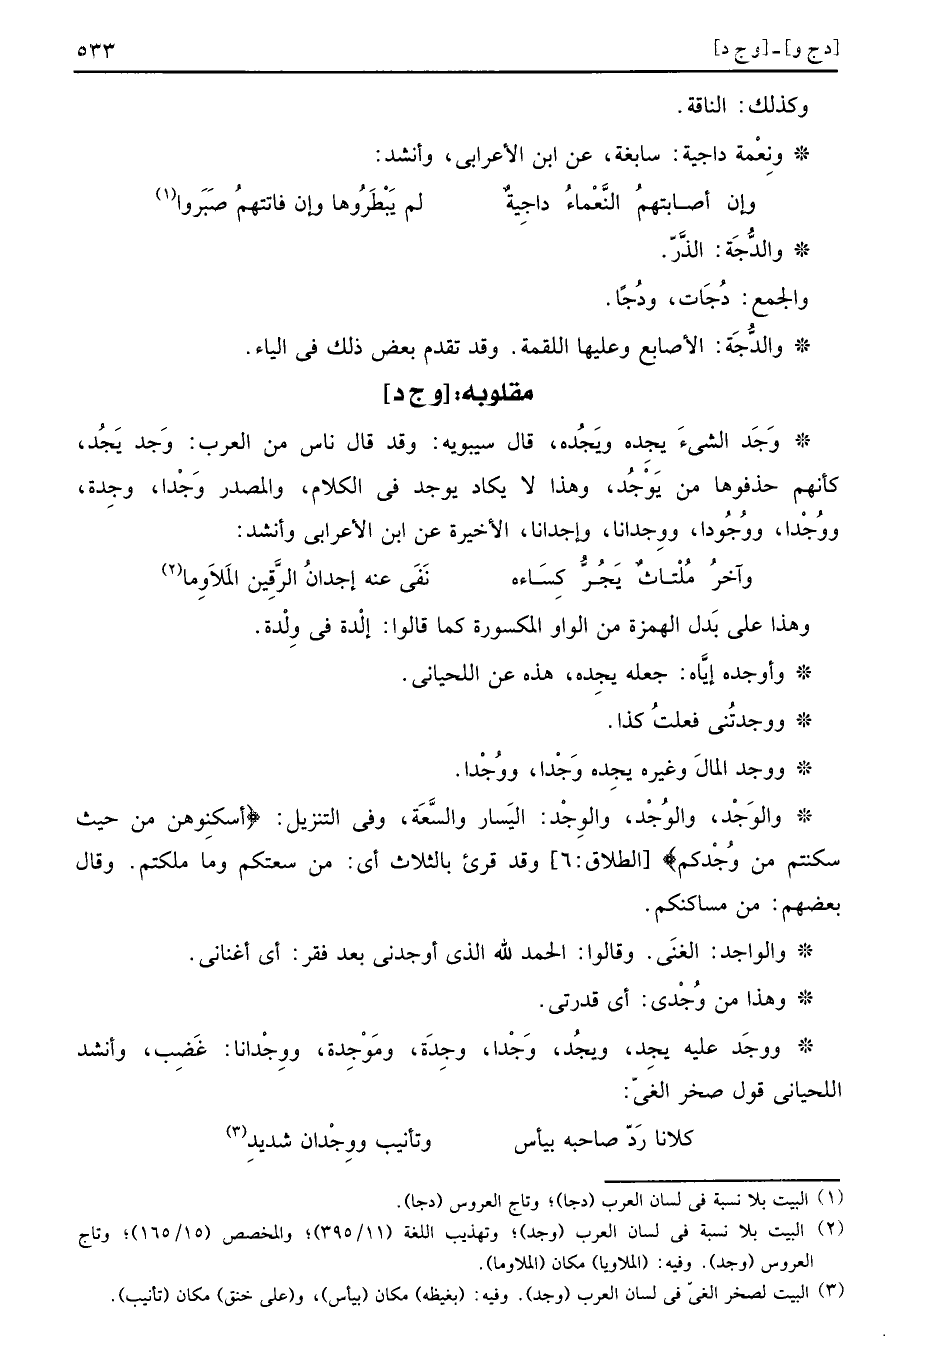 [د ج و] - [و ج د] ٥٣٣
وكذلك: الناقة.
* ونِعْمة داجية: سابغة، عن ابن الأعرابى، وأنشد:
وإن أصـابتهمُ النَّعْماءُ داجِيةٌ لم يَبْطَرُوها وإن فاتتهمُ صبَرَوا(١)
* والدُّجَة: الذَّرّ.
والجمع: دُجَات، ودُجًا.
* والدُّجَة: الأصابع وعليها اللقمة. وقد تقدم بعض ذلك فى الياء.
مقلوبه: [و ج د]
* وَجَد الشىءَ يجِده ويَجُده، قال سيبويه: وقد قال ناس من العرب: وَجد يَجُد،
كأنهم حذفوها من يَوْجُد، وهذا لا يكاد يوجد فى الكلام، والمصدر وَجْدا، وجِدة،
ووُجْدا، ووُجُودا، ووِجدانا، وإجدانا، الأخيرة عن ابن الأعرابى وأنشد:
وآخرُ مُلْتـاثٌ يَجُـرُّ كِسَـاءه نَفَى عنه إجدانُ الرَّقِين المَلاَوِما(٢)
وهذا على بَدل الهمزة من الواو المكسورة كما قالوا: إلْدة فى وِلْدة.
* وأوجده إيَّاه: جعله يجِده، هذه عن اللحيانى.
* ووجدتُنى فعلتُ كذا.
* ووجد المالَ وغيره يجِده وَجْدا، ووُجْدا.
* والوَجْد، والوُجْد، والوِجْد: اليَسار والسَّعَة، وفى التنزيل: ﴿أسكنوهن من حيث
سكنتم من وُجْدكم﴾ [الطلاق:٦] وقد قرئ بالثلاث أى: من سعتكم وما ملكتم. وقال
بعضهم: من مساكنكم.
* والواجد: الغنَى. وقالوا: الحمد لله الذى أوجدنى بعد فقر: أى أغنانى.
* وهذا من وُجْدى: أى قدرتى.
* ووجَد عليه يجِد، ويجُد، وَجْدا، وجِدَة، ومَوْجِدة، ووِجْدانا: غَضِب، وأنشد
اللحيانى قول صخر الغىّ:
كلانا رَدّ صاحبه بيأس وتأنيب ووِجْدان شديدِ(٣)
(١) البيت بلا نسبة فى لسان العرب (دجا)؛ وتاج العروس (دجا).
(٢) البيت بلا نسبة فى لسان العرب (وجد)؛ وتهذيب اللغة (٣٩٥/١١)؛ والمخصص (١٦٥/١٥)؛ وتاج
العروس (وجد). وفيه: (الملاويا) مكان (الملاوما).
(٣) البيت لصخر الغىّ فى لسان العرب (وجد). وفيه: (بغيظه) مكان (بيأس)، و(على خنق) مكان (تأنيب).